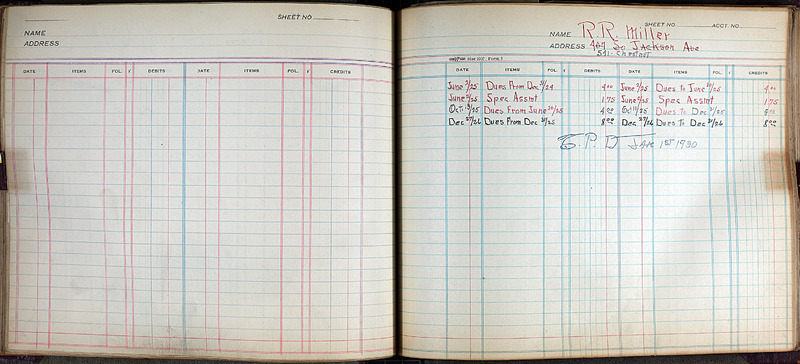 SHEET NO.
NAME
ADDRESS
DATE ITEMS FOL. √ DEBITS DATE ITEMS FOL. √ CREDITS
SHEET NO. ACCT. NO.
NAME R.R. Miller
ADDRESS 467 So Jackson Ave
541 - Chestnut
DATE ITEMS FOL. √ DEBITS DATE ITEMS FOL. √ CREDITS
June 2/25 Dues From Dec 31/24 4 00 June 2/25 Dues to June 30/25 4 00
June 2/25 Spec Assmt 1 75 June 2/25 Spec Assmt 1 75
Oct 13/25 Dues From June 30/25 4 00 Oct 13/25 Dues To Dec 31/25 4 00
Dec 27/26 Dues From Dec 31/25 8 00 Dec 27/26 Dues To Dec 31/26 8 00
E. P. D Jan 1st 1930